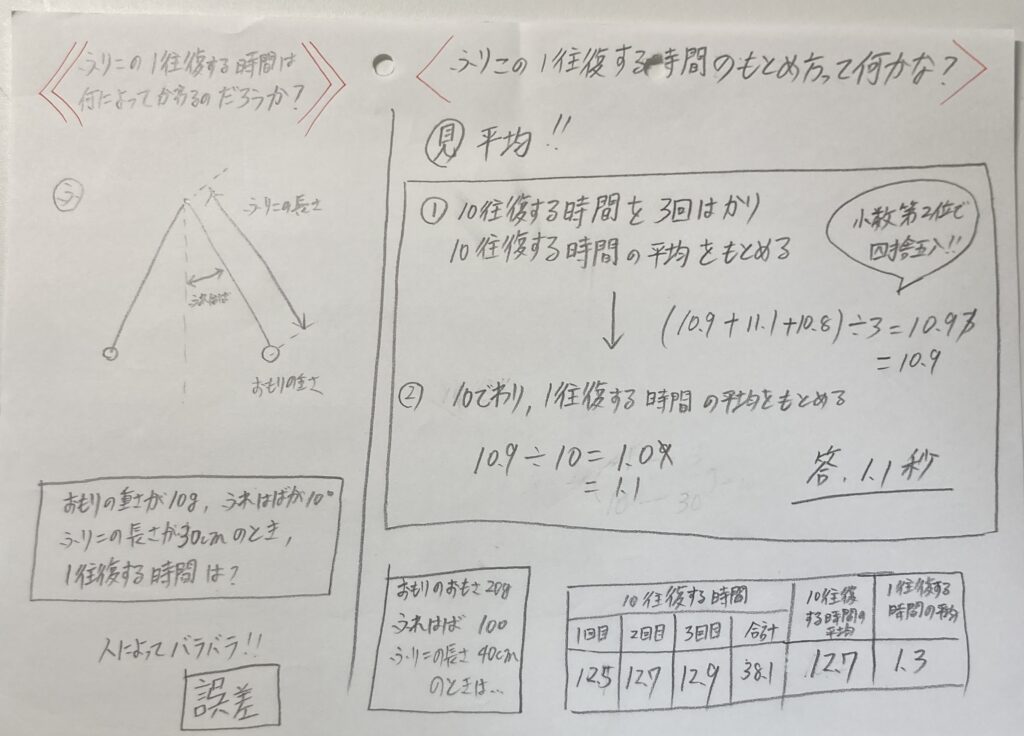 ふりこの1往復する時間は
何によってかわるのだろうか?
ふ
ふりこの長さ
ふれはば
おもりの重さ
おもりの重さが10g, ふれはばが10°
ふりこの長さが30cmのとき,
1往復する時間は?
人によってバラバラ!!
誤差
ふりこの1往復する時間のもとめ方って何かな?
見 平均!!
① 10往復する時間を3回はかり
10往復する時間の平均をもとめる
小数第2位で
四捨五入!!
(10.9+11.1+10.8)÷3=10.93
=10.9
② 10でわり, 1往復する時間の平均をもとめる
10.9÷10=1.09
=1.1
答. 1.1秒
おもりのおもさ20g
ふれはば 10°
ふりこの長さ 40cm
のときは…
10往復する時間
10往復
する時間の
平均
1往復する
時間の平均
1回目 2回目 3回目 合計
12.5 12.7 12.9 38.1 12.7 1.3